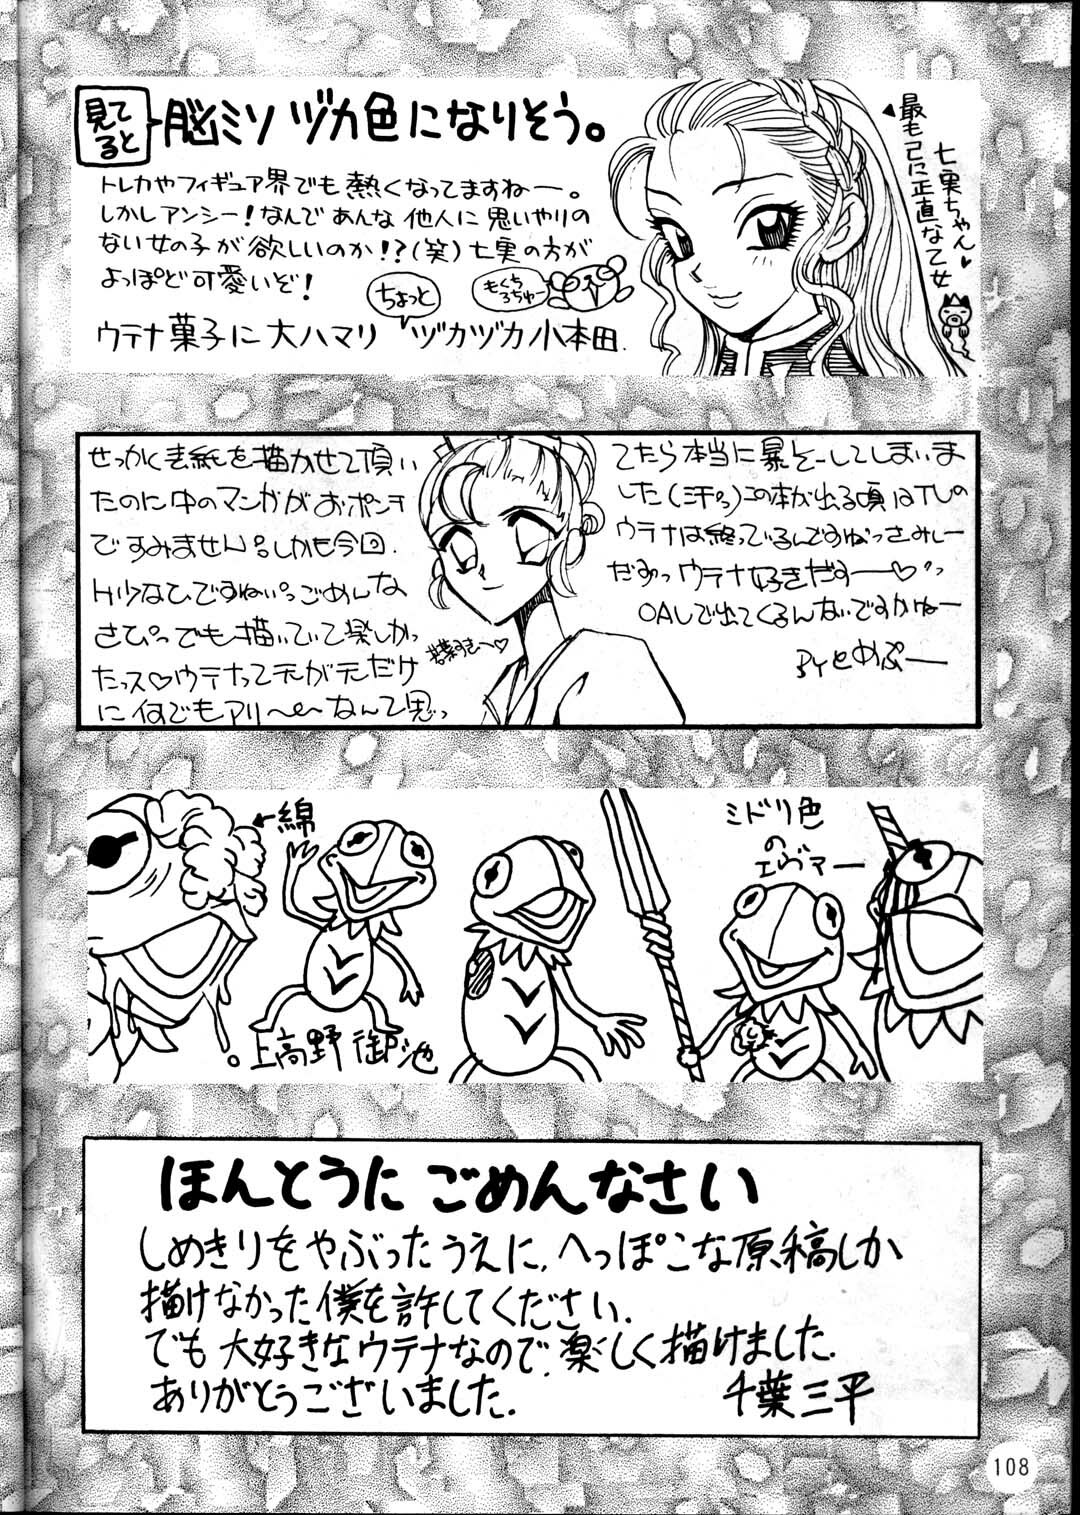 見てると
脳ミソ ヅカ色になりそう。
トレカやフィギュア界でも熱くなってますねー。
しかしアンシー!なんであんな他人に思いやりの
ない女の子が欲しいのか!?(笑)七実の方が
よっぽど可愛いぞ!
ちょっと
もくちろちゅー
ウテナ菓子に大ハマリ ヅカヅカ小本田.
七実ちゃん♥
最も己に正直な乙女
せっかく表紙を描かせて頂い
たのに中のマンガがおポンチ
ですみません。しかも今回.
H少なひですねいっごめんな
さひっでも描いていて楽しかっ
たっス♡ウテナって天が天だけ
に何でもアリ〜〜なんて思っ
若葉すきーへ♡
てたら本当に暴走ーしてしまいま
した(汗っ)この本が出る頃はTVの
ウテナは終っているんですねっさみしー
だみっウテナ好きだすー♡っ
OAVで出てくるんないですかねー
BYとめぷー
←綿
上高野御池
ミドリ色
の
エヴァー
ほんとうに ごめんなさい
しめきりをやぶったうえに、へっぽこな原稿しか
描けなかった僕を許してください.
でも大好きなウテナなので、楽しく描けました.
ありがとうございました.
千葉三平
108